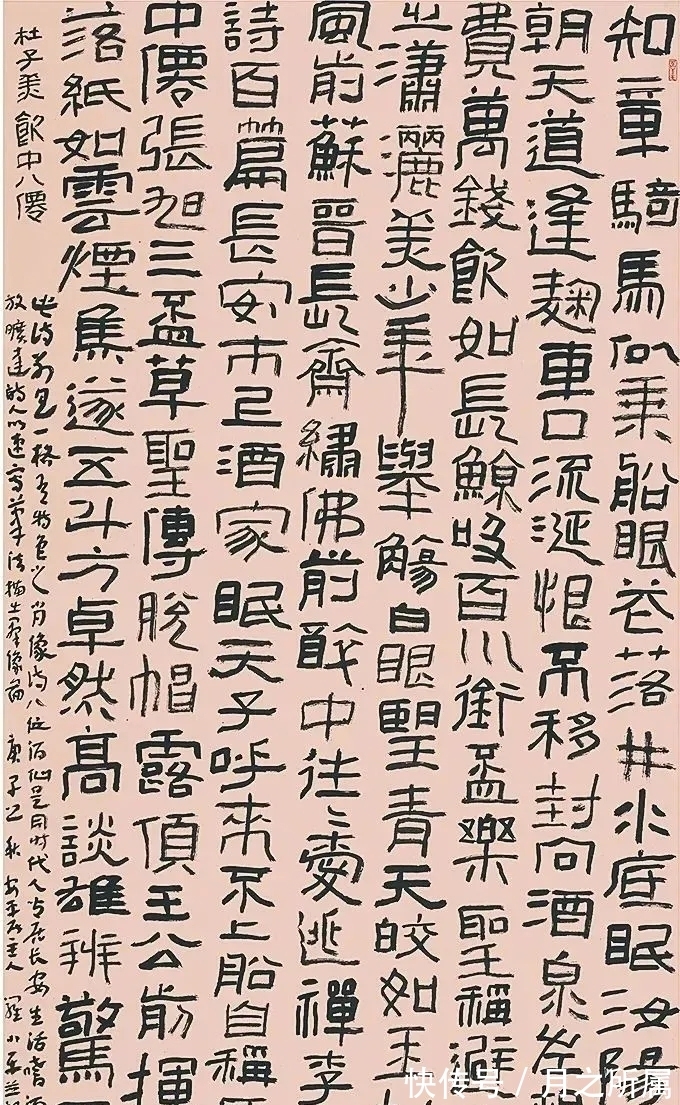 知章騎馬似乘船眼花落井水底眠汝陽
朝天道逢麴車口流涎恨不移封向酒泉左
費萬錢飲如長鯨吸百川銜盃樂聖稱避
之瀟灑美少年舉觴白眼望青天皎如玉
風前蘇晉長齋繡佛前醉中往〻愛逃禪李
詩百篇長安市上酒家眠天子呼來不上船自稱
中僊張旭三盃草聖傳脫帽露頂王公前揮
落紙如雲煙焦遂五斗方卓然高談雄辨驚
杜子美飲中八僊
此诗别具一格有特色之肖像诗八位酒仙是同时代人皆居长安生活嗜酒
放曠達的人以速寫筆法描出群像 庚子之秋 主人 羅小平
快传号 / 月之所属